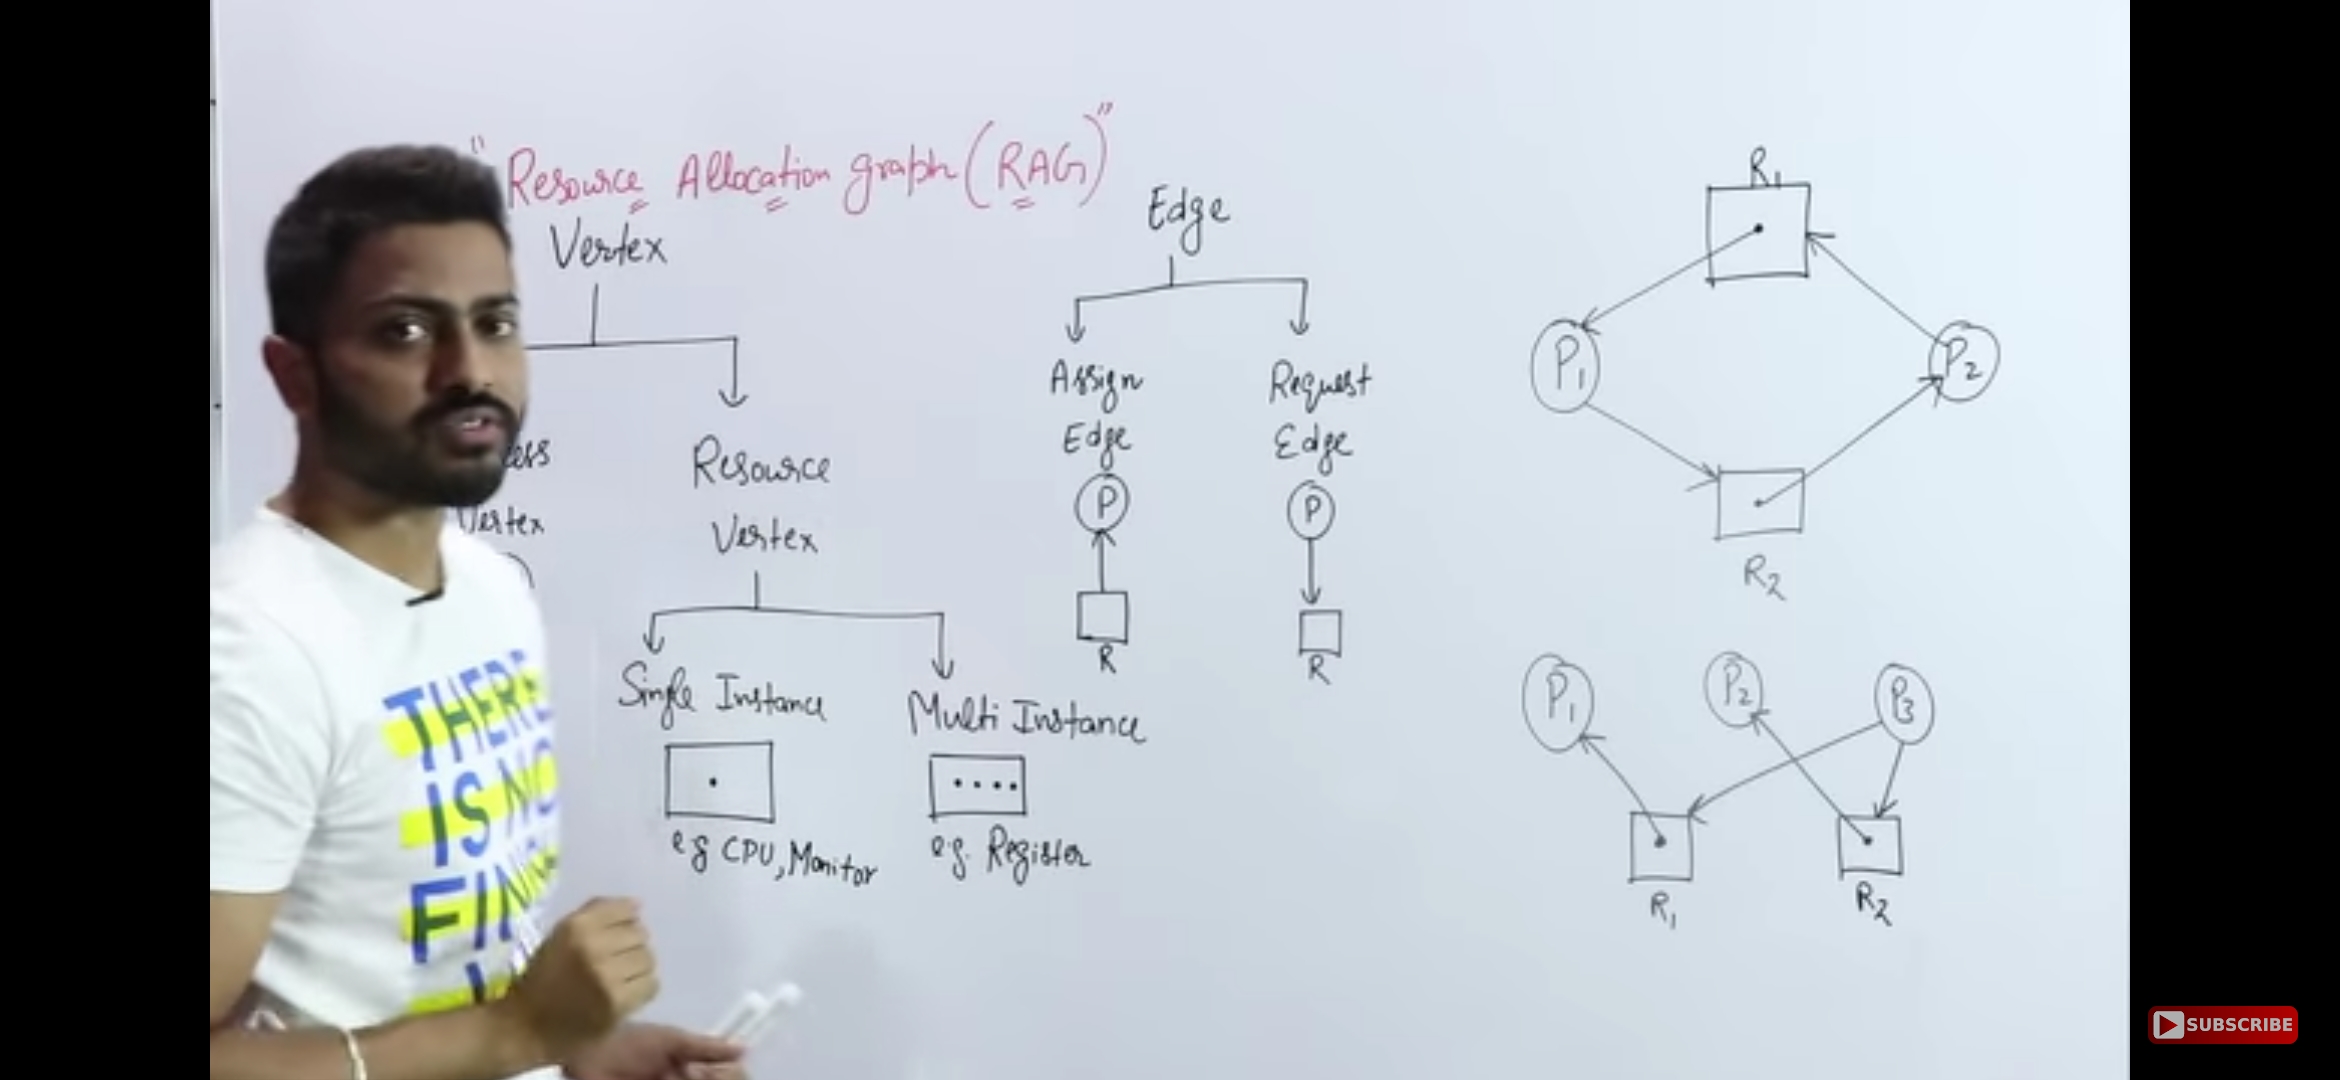 "Resource Allocation graph (RAG)"
Vertex
Edge
Vertex
Resource
Vertex
Single Instance
Multi Instance
e.g CPU, Monitor
e.g. Register
Assign
Edge
P
R
Request
Edge
P
R
R1
P1
P2
R2
P1
P2
P3
R1
R2
THERE
IS NO
SUBSCRIBE